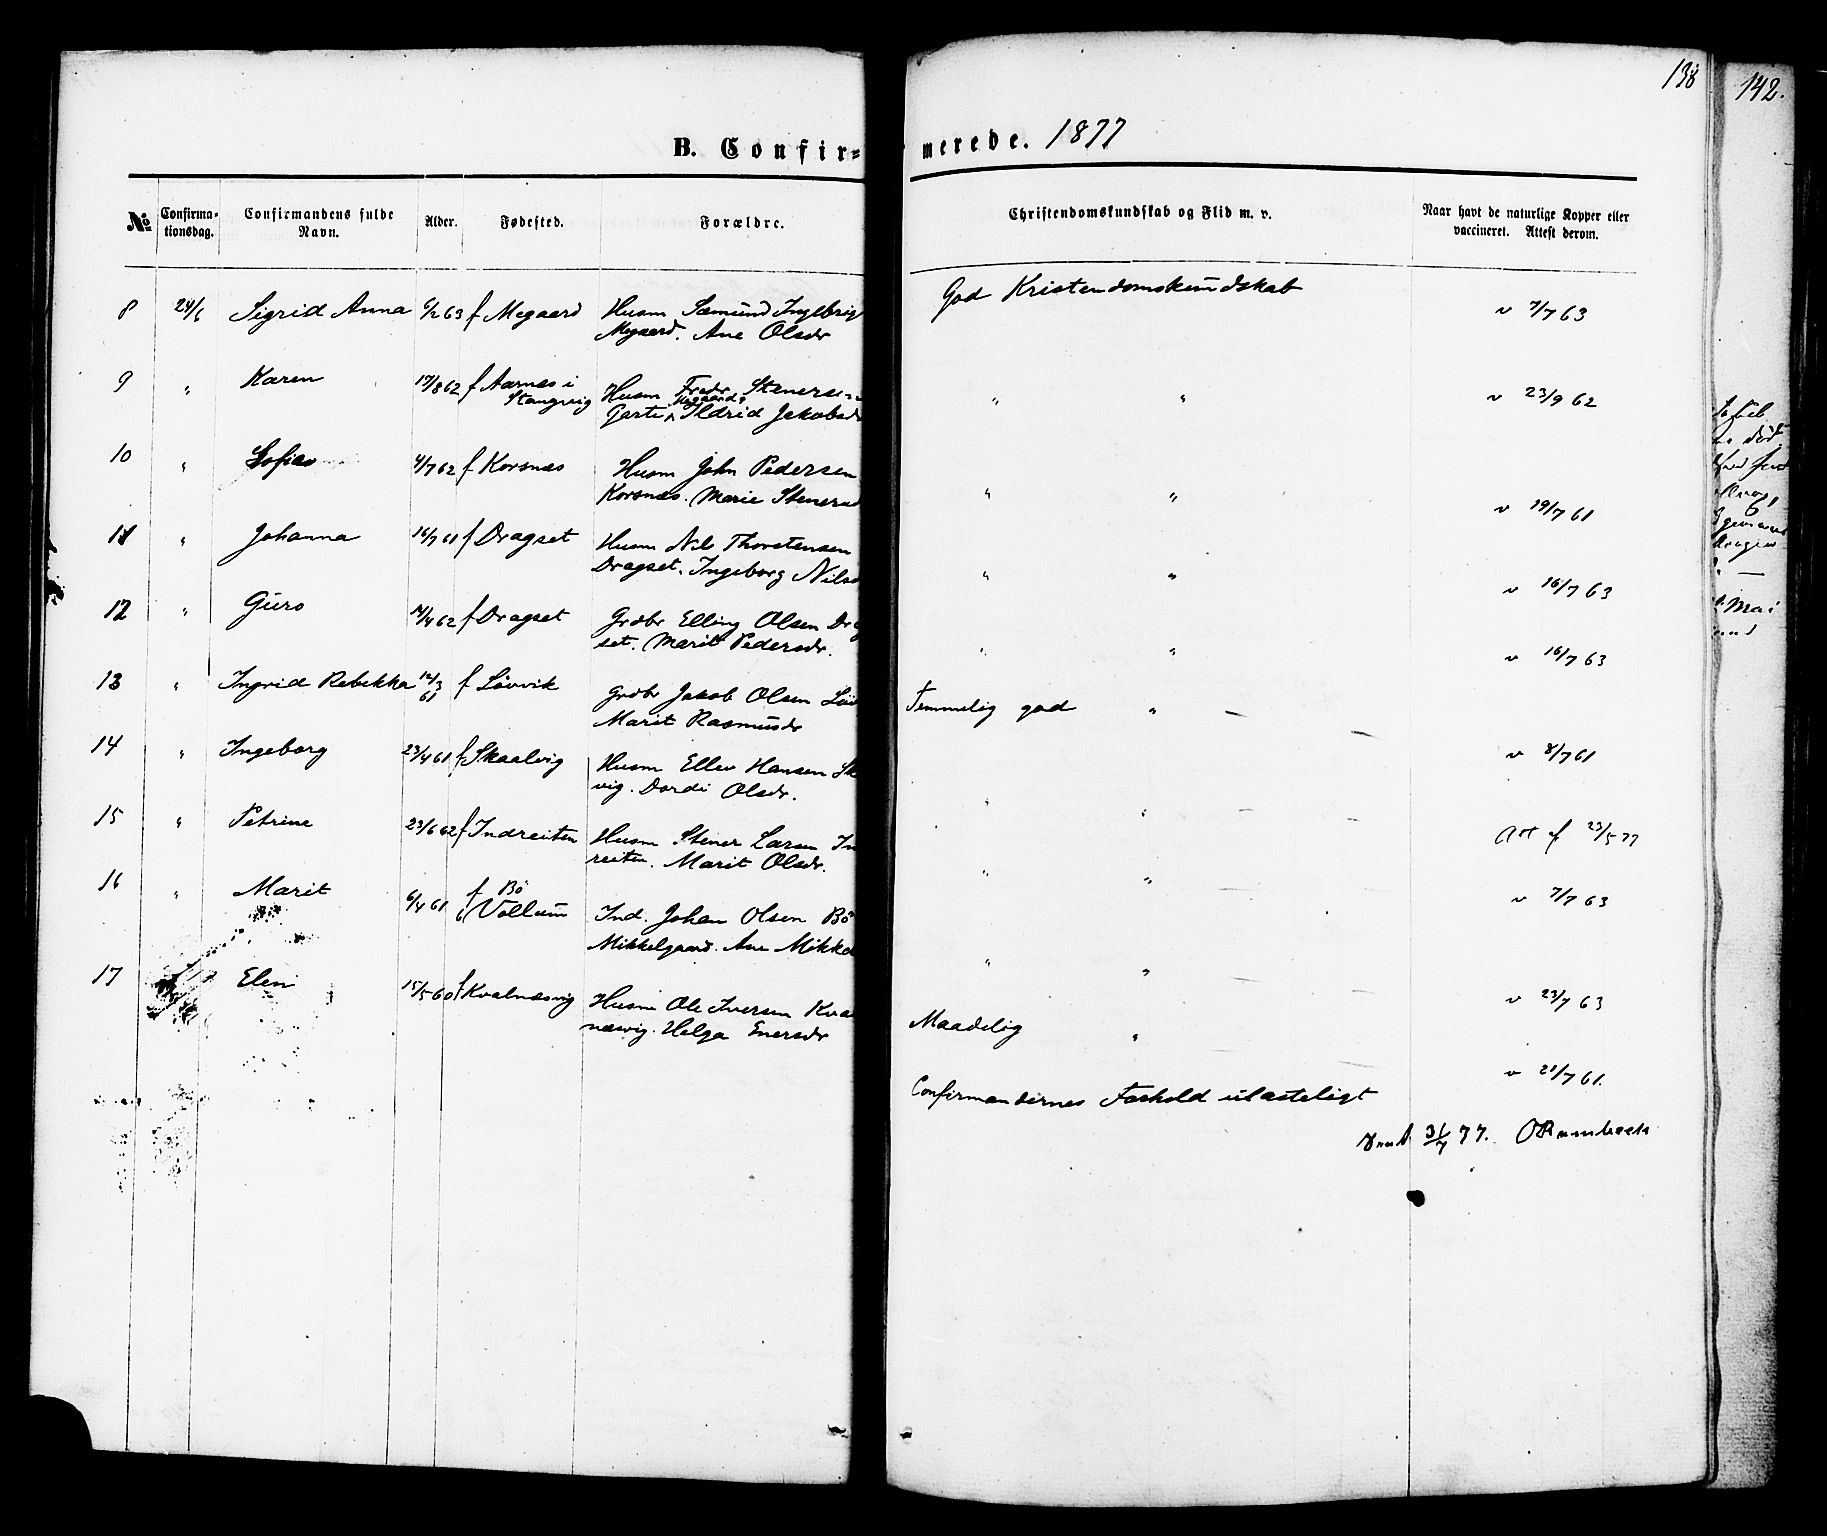 138
142.
B. Confir- merede. 1877
No
Confirma-
tionsdag.
Confirmandens fulde
Navn.
Alder.
Fødested.
Forældre.
Christendomskundskab og Flid m. v.
Naar havt de naturlige Kopper eller
vaccineret. Attest derom.
8 24/6 Sigrid Anna 6/2 63 f Megaard Husm Sæmund Ingebrig God Kristendomskundskab v 7/7 63
Megaard. Ane Olsdr
9 " Karen 17/8 62 f Aarnæs i Husm Fredr. Steners " " v 23/9 62
Stangvig Ildrid Jakobsdr
10 " Sofie 4/7 62 f Korsnæs Husm John Pedersen " " v 19/7 61
Korsnæs. Marie Stenersd
11 " Johanna 14/7 61 f Dragset Husm Nils Thorstensen " " v 16/7 63
Dragset. Ingeborg Nilsd
12 " Guro 14/4 62 f Dragset Grdbr Elling Olsen Drag " " v 16/7 63
set. Marit Pedersdr.
13 " Ingrid Rebekka 12/3 61 f Løvvik Grdbr Jakob Olsen Løv Temmelig god " v 8/7 61
Marit Rasmusdr
14 " Ingeborg 23/4 61 f Skaalvig Husm Ellev Hansen Sk " " Att f 23/5 77
vig. Dordi Olsdr.
15 " Petrine 23/6 62 f Indreiten Husm Stener Larsen In " " v 7/7 63
reiten. Marit Olsdr.
16 " Marit 6/4 61 f Bö Vollum Ind. Johan Olsen Bö " " v 23/7 63
Mikkelgaard. Ane Mikkel
17 " Elen 15/5 60 f Kvalnæsvig Husm Ole Iversen Kval Maadelig " v 21/7 61.
næsvig. Helga Enersdr
Confirmandernes Forhold ulasteligt
31/7 77.